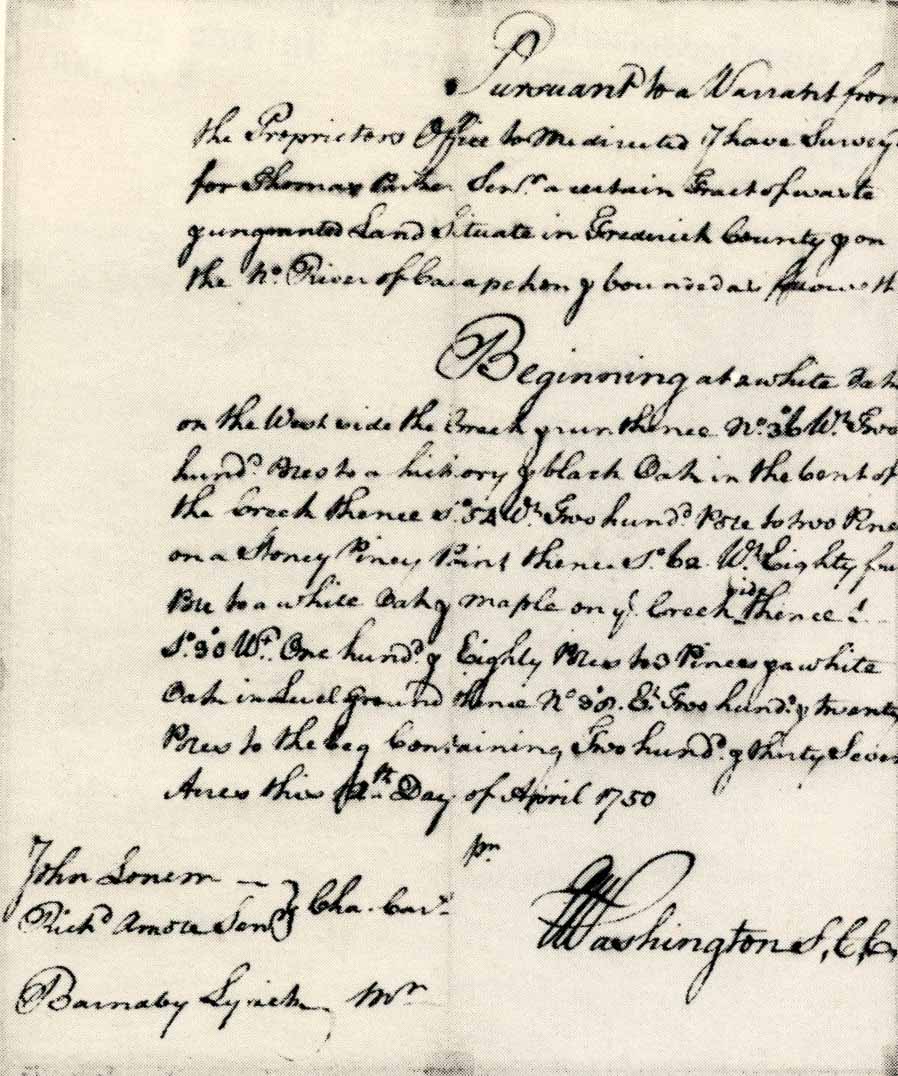 Pursuant to a Warrant from
the Proprietors Office to Me directed I have Survey
for Thomas Parker Senr. a certain Tract of waste
& ungranted Land Situate in Frederick County & on
the No. River of Cacapehon & bounded as followeth
Beginning at a white Oak
on the West side the Creek & run thence No. 36 Wt. Two
hundd. Poles to a hickory & black Oak in the bent of
the Creek thence So. 54 Wt. Two hundd. Pole to two Pines
on a Stoney Piney Point thence So. 62 Wt. Eighty four
Pole to a white Oak & maple on ye. Creek side thence
So. 30 Wt. One hundd. & Eighty Poles to 3 Pines & a white
Oak in Level Ground thence No. 38 Et. Two hundd. & twenty
Poles to the beg Containing Two hundd. & thirty Seven
Acres this 12th Day of April 1750
pr
John Lonem
Richd Arnold Senr } Cha. Carrs.
Washington S,C,C,
Barnaby Lynch Mr